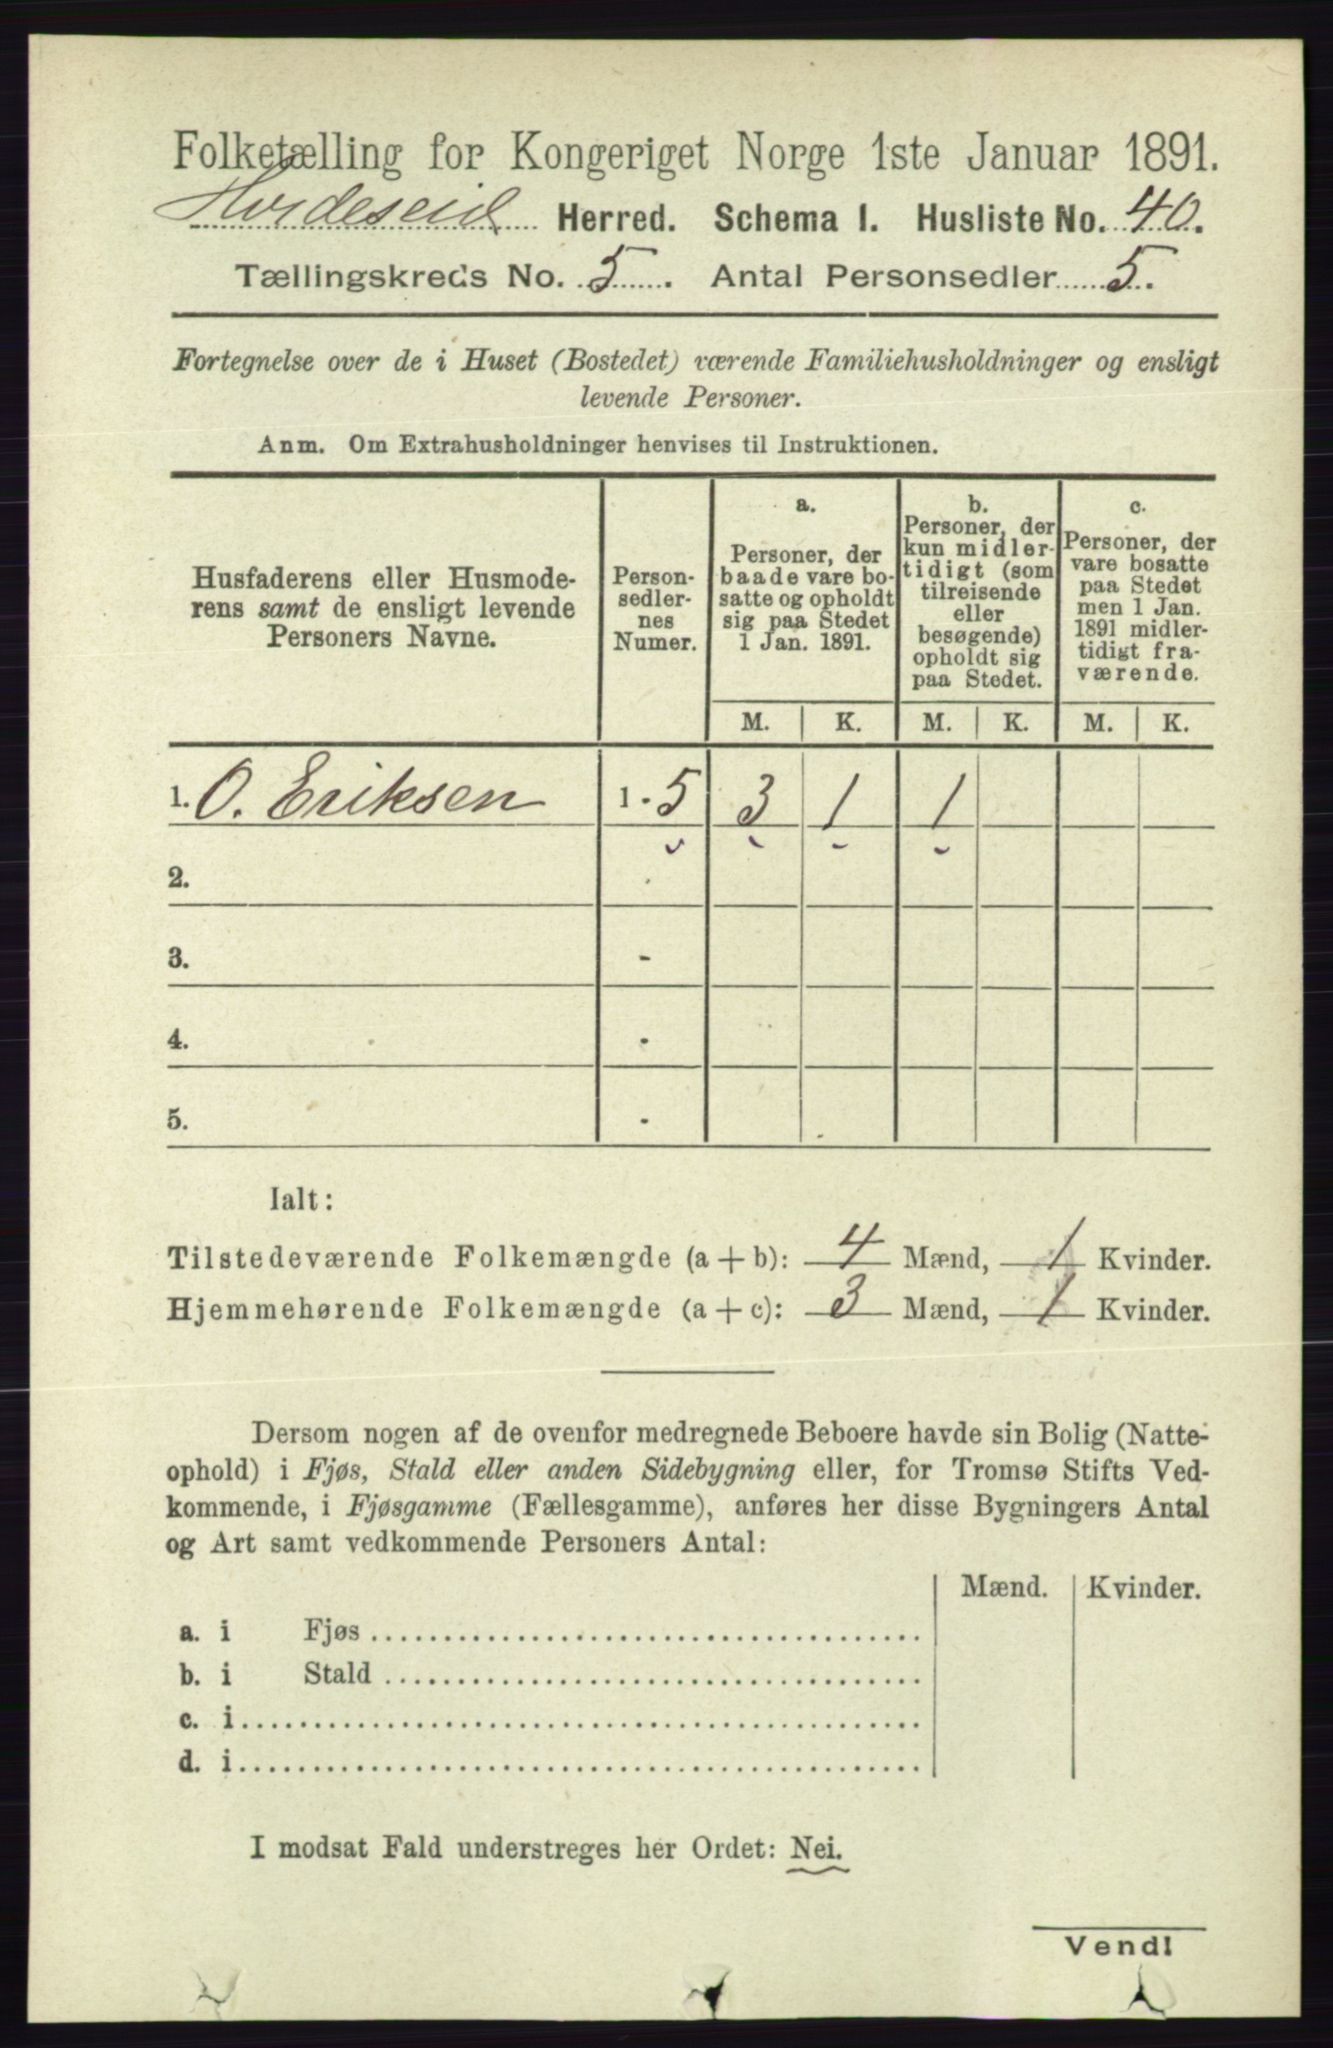 Folketælling for Kongeriget Norge 1ste Januar 1891.
Hvideseid Herred. Schema I. Husliste No. 40.
Tællingskreds No. 5. Antal Personsedler 5.
Fortegnelse over de i Huset (Bostedet) værende Familiehusholdninger og ensligt
levende Personer.
Anm. Om Extrahusholdninger henvises til Instruktionen.
Husfaderens eller Husmode-
rens samt de ensligt levende
Personers Navne.
Person-
sedler-
nes
Numer.
a.
Personer, der
baade vare bo-
satte og opholdt
sig paa Stedet
1 Jan. 1891.
b.
Personer, der
kun midler-
tidigt (som
tilreisende
eller
besøgende)
opholdt sig
paa Stedet.
c.
Personer, der
vare bosatte
paa Stedet
men 1 Jan.
1891 midler-
tidigt fra-
værende.
M. K. M. K. M. K.
1. O. Eriksen 1 - 5 3 1 1
2.
3. -
4. -
5. -
Ialt:
Tilstedeværende Folkemængde (a + b): 4 Mænd, 1 Kvinder.
Hjemmehørende Folkemængde (a + c): 3 Mænd, 1 Kvinder.
Dersom nogen af de ovenfor medregnede Beboere havde sin Bolig (Natte-
ophold) i Fjøs, Stald eller anden Sidebygning eller, for Tromsø Stifts Ved-
kommende, i Fjøsgamme (Fællesgamme), anføres her disse Bygningers Antal
og Art samt vedkommende Personers Antal:
Mænd. Kvinder.
a. i Fjøs
b. i Stald
c. i
d. i
I modsat Fald understreges her Ordet: Nei.
Vendl